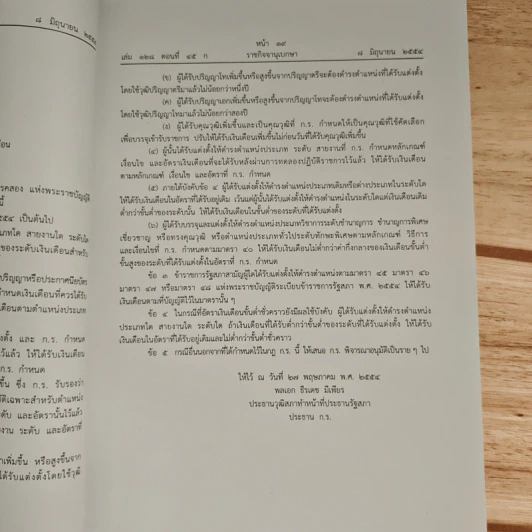 ๘ มิถุนายน ๒๕๕๔
รคสอง แห่งพระราชบัญญัติ
๕๕๔ เป็นต้นไป
ภทใด สายงานใด ระดับใด
ของระดับเงินเดือนสำหรับ
ปริญญาหรือประกาศนียบัตร
กำหนดเงินเดือนที่ควรได้รับ
เดือนตามตำแหน่งประเภท
ตั้ง และ ก.ร. กำหนด
ว้แล้ว ให้ได้รับเงินเดือน
ก.ร. กำหนด
ขึ้น ซึ่ง ก.ร. รับรองว่า
บัติเฉพาะสำหรับตำแหน่ง
ดับ และอัตรานั้นไว้แล้ว
งาน ระดับ และอัตราที่
เพิ่มขึ้น หรือสูงขึ้นจาก
ได้รับแต่งตั้งโดยใช้วุฒิ
หน้า ๑๙
เล่ม ๑๒๘ ตอนที่ ๔๕ ก ราชกิจจานุเบกษา ๘ มิถุนายน ๒๕๕๔
(ข) ผู้ได้รับปริญญาโทเพิ่มขึ้นหรือสูงขึ้นจากปริญญาตรีจะต้องดำรงตำแหน่งที่ได้รับแต่งตั้ง
โดยใช้วุฒิปริญญาตรีมาแล้วไม่น้อยกว่าหนึ่งปี
(ค) ผู้ได้รับปริญญาเอกเพิ่มขึ้นหรือสูงขึ้นจากปริญญาโทจะต้องดำรงตำแหน่งที่ได้รับแต่งตั้ง
โดยใช้วุฒิปริญญาโทมาแล้วไม่น้อยกว่าสองปี
(ง) ผู้ได้รับคุณวุฒิเพิ่มขึ้นและเป็นคุณวุฒิที่ ก.ร. กำหนดให้เป็นคุณวุฒิที่ใช้คัดเลือก
เพื่อบรรจุเข้ารับราชการ ปรับให้ได้รับเงินเดือนเพิ่มขึ้นไม่ก่อนวันที่ได้รับคุณวุฒิเพิ่มขึ้น
(๔) ผู้นั้นได้รับแต่งตั้งให้ดำรงตำแหน่งประเภท ระดับ สายงานที่ ก.ร. กำหนดหลักเกณฑ์
เงื่อนไข และอัตราเงินเดือนที่จะได้รับหลังผ่านการทดลองปฏิบัติราชการไว้แล้ว ให้ได้รับเงินเดือน
ตามหลักเกณฑ์ เงื่อนไข และอัตราที่ ก.ร. กำหนด
(๕) ภายใต้บังคับข้อ ๔ ผู้ได้รับแต่งตั้งให้ดำรงตำแหน่งประเภทเดิมหรือต่างประเภทในระดับใด
ให้ได้รับเงินเดือนในอัตราที่ได้รับอยู่เดิม เว้นแต่ผู้นั้นได้รับแต่งตั้งให้ดำรงตำแหน่งในระดับใดแต่เงินเดือนเดิม
ต่ำกว่าขั้นต่ำของระดับนั้น ให้ได้รับเงินเดือนในขั้นต่ำของระดับที่ได้รับแต่งตั้ง
(๖) ผู้ได้รับบรรจุและแต่งตั้งให้ดำรงตำแหน่งประเภทวิชาการระดับชำนาญการ ชำนาญการพิเศษ
เชี่ยวชาญ หรือทรงคุณวุฒิ หรือตำแหน่งประเภททั่วไประดับทักษะพิเศษตามหลักเกณฑ์ วิธีการ
และเงื่อนไขที่ ก.ร. กำหนดตามมาตรา ๔๐ ให้ได้รับเงินเดือนไม่ต่ำกว่าค่ากึ่งกลางของเงินเดือนขั้นต่ำ
ขั้นสูงของระดับที่ได้รับแต่งตั้งในอัตราที่ ก.ร. กำหนด
ข้อ ๓ ข้าราชการรัฐสภาสามัญผู้ใดได้รับแต่งตั้งให้ดำรงตำแหน่งตามมาตรา ๔๕ มาตรา ๔๖
มาตรา ๔๗ หรือมาตรา ๔๘ แห่งพระราชบัญญัติระเบียบข้าราชการรัฐสภา พ.ศ. ๒๕๕๔ ให้ได้รับ
เงินเดือนตามที่บัญญัติไว้ในมาตรานั้น ๆ
ข้อ ๔ ในกรณีที่อัตราเงินเดือนขั้นต่ำชั่วคราวยังมีผลใช้บังคับ ผู้ได้รับแต่งตั้งให้ดำรงตำแหน่ง
ประเภทใด สายงานใด ระดับใด ถ้าเงินเดือนที่ได้รับต่ำกว่าขั้นต่ำของระดับที่ได้รับแต่งตั้ง ให้ได้รับ
เงินเดือนในอัตราที่ได้รับอยู่เดิมและไม่ต่ำกว่าขั้นต่ำชั่วคราว
ข้อ ๕ กรณีอื่นนอกจากที่ได้กำหนดไว้ในกฎ ก.ร. นี้ ให้เสนอ ก.ร. พิจารณาอนุมัติเป็นราย ๆ ไป
ให้ไว้ ณ วันที่ ๒๗ พฤษภาคม พ.ศ. ๒๕๕๔
พลเอก ธีรเดช มีเพียร
ประธานวุฒิสภาทำหน้าที่ประธานรัฐสภา
ประธาน ก.ร.